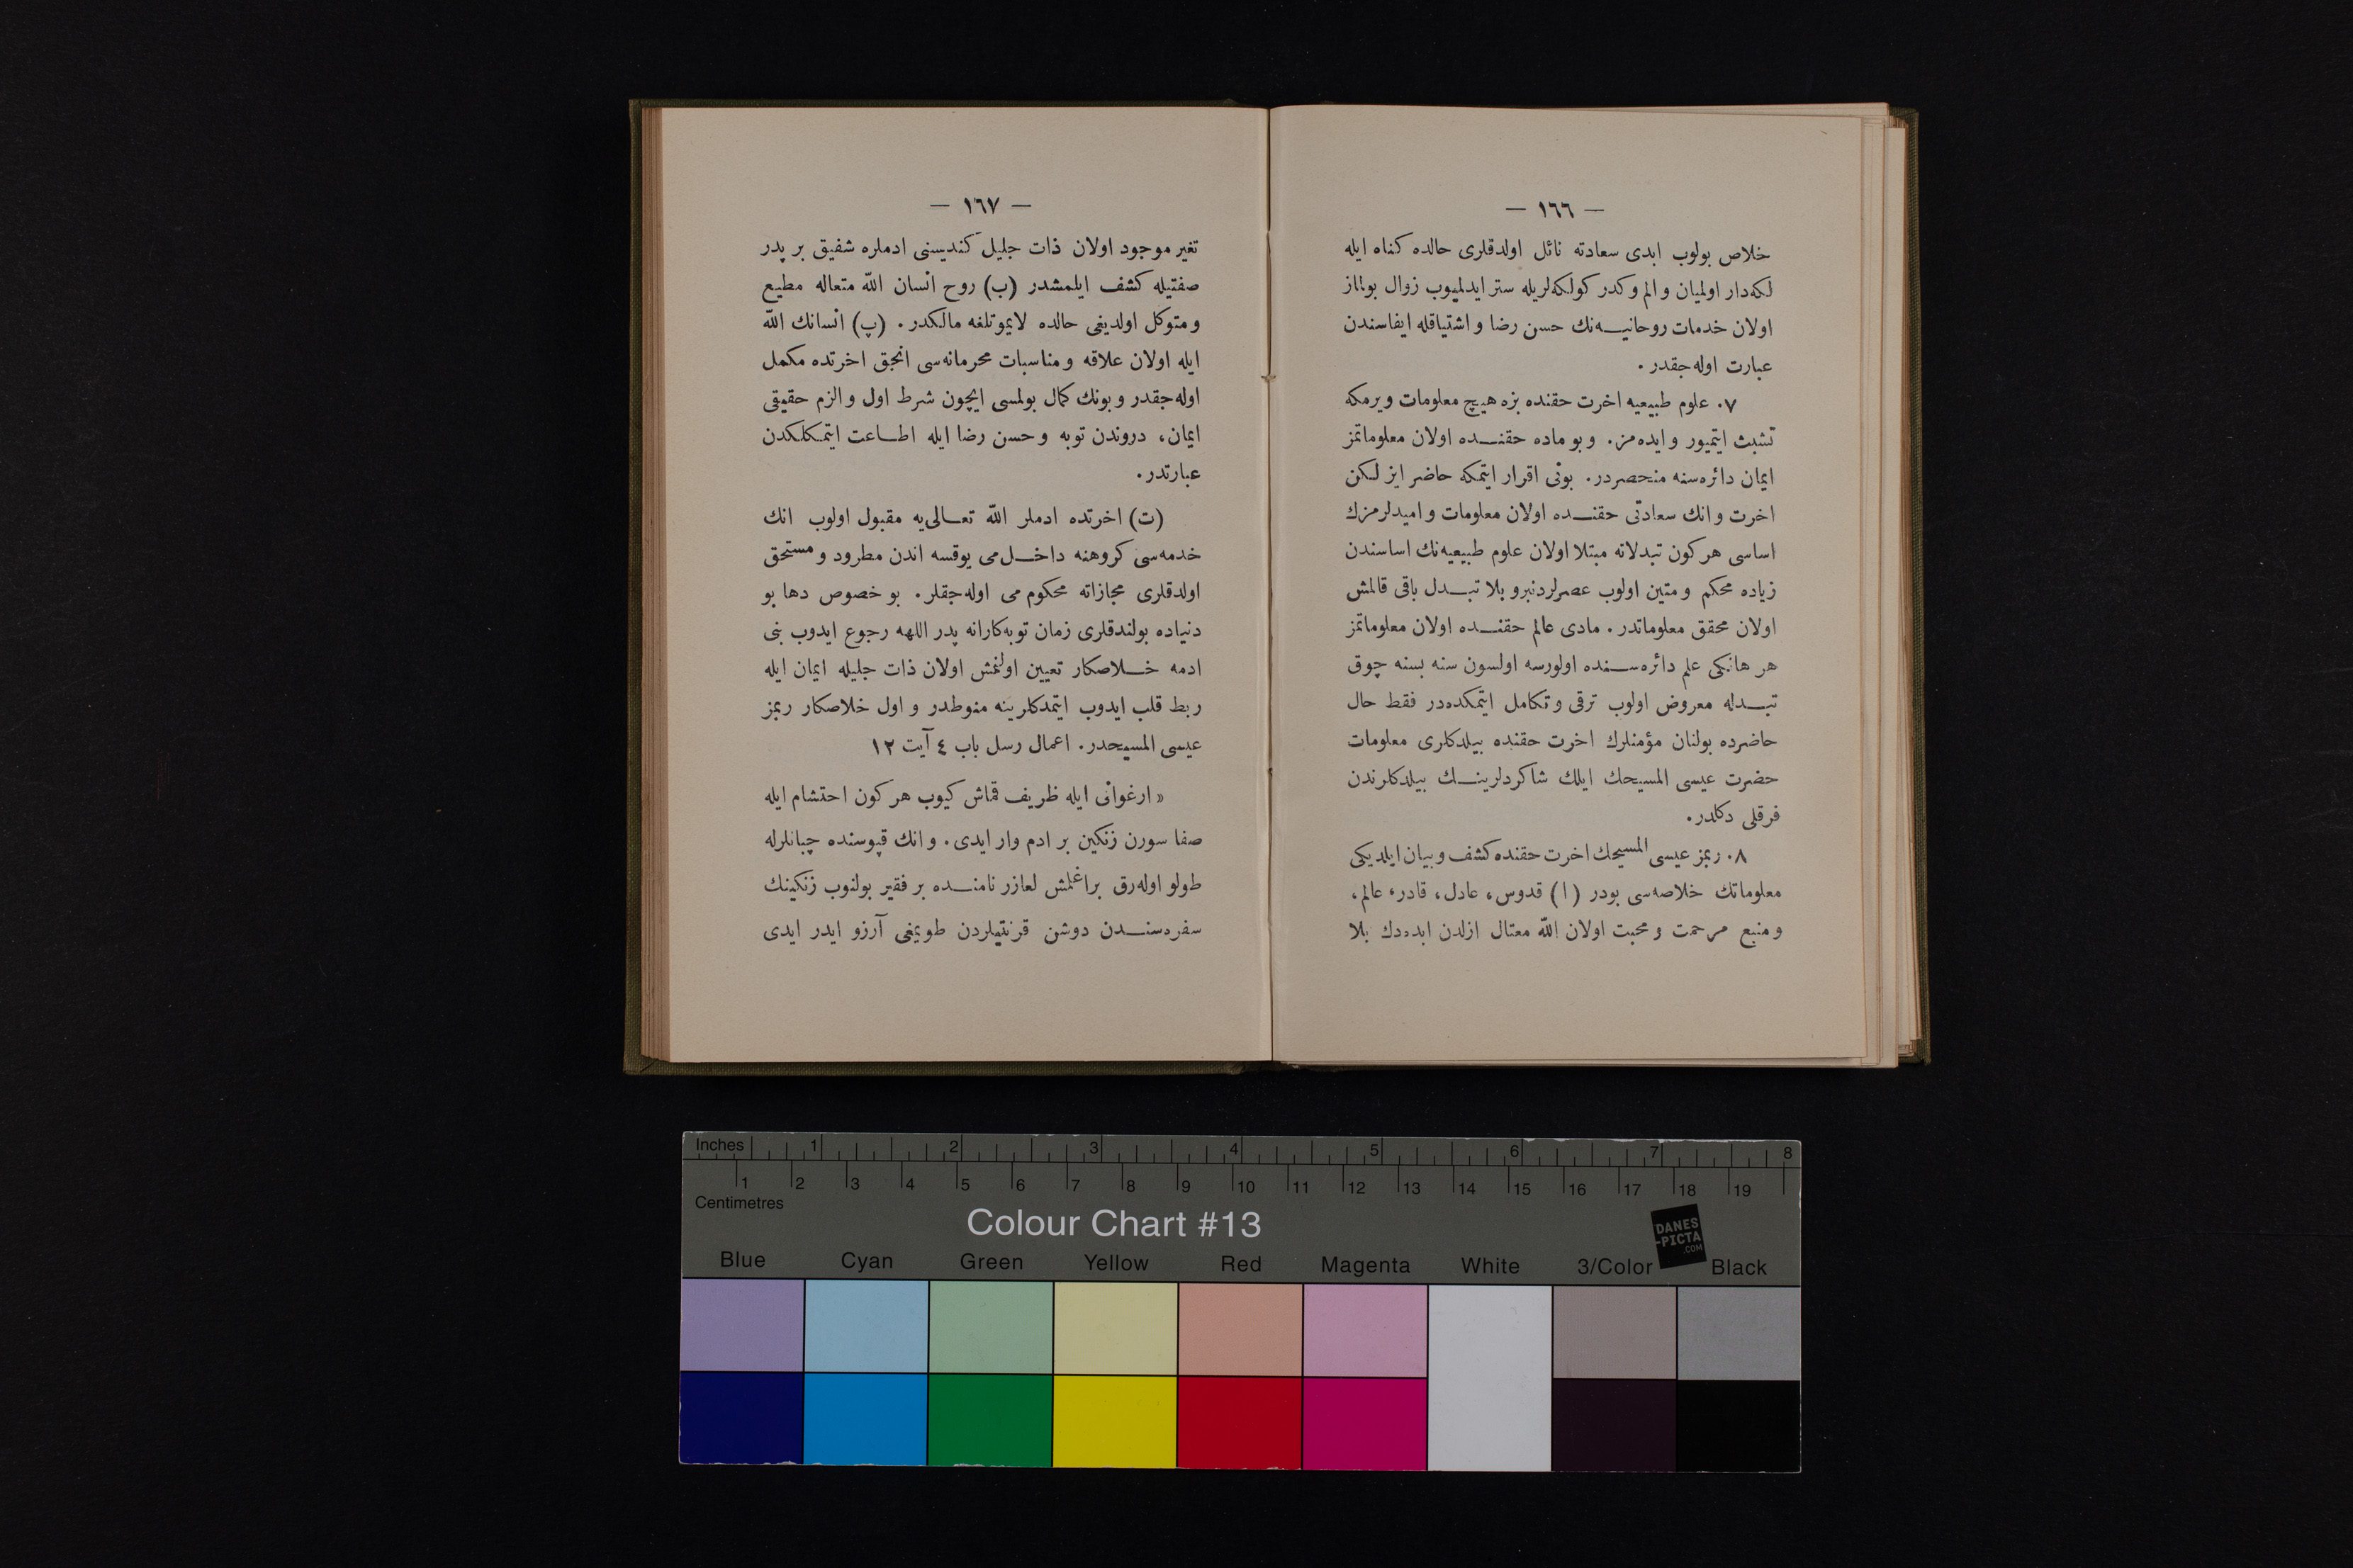 — ١٦٦ —
خلاص بولوب ابدی سعادته نائل اولدقلری حالده كناه ایله
لكه‌دار اولمیان و الم و كدر كولكه‌لریله ستر ایدلمیوب زوال بولماز
اولان خدمات روحانیـــه‌نك حسن رضا و اشتیاقله ایفاسندن
عبارت اوله‌جقدر .
٧. علوم طبیعیه اخرت حقنده بزه هیچ معلومات ویرمكه
تشبث ایتمیور و ایده‌مز. و بو ماده حقنـــده اولان معلوماتمز
ایمان دائره‌سنه منحصردر. بونی اقرار ایتمكه حاضر ایز لكن
اخرت و انك سعادتی حقنـــده اولان معلومات و امیدلرمزك
اساسی هر كون تبدلاته مبتلا اولان علوم طبیعیه‌نك اساسندن
زیاده محكم و متین اولوب عصرلردنبرو بلا تبـــدل باقی قالمش
اولان محقق معلوماتدر . مادی عالم حقنـــده اولان معلوماتمز
هر هانكی علم دائره‌ســـنده اولورسه اولسون سنه بسنه چوق
تبـــدله معروض اولوب ترقی و تكامل ایتمكده‌در فقط حال
حاضرده بولنان مؤمنلرك اخرت حقنده بیلدكلری معلومات
حضرت عیسی المسیحك ایلك شاكردلرینـــك بیلدكلرندن
فرقلی دكلدر.
٨. ربمز عیسی المسیحك اخرت حقنده كشف و بیان ایلدیكی
معلوماتك خلاصه‌سی بودر (ا) قدوس، عادل، قادر، عالم،
و منبع مرحمت و محبت اولان اللّه متعال ازلدن ابده‌دك بلا
— ١٦٧ —
تغیر موجود اولان ذات جلیل كندیسنی ادملره شفیق بر پدر
صفتیله كشف ایلمشدر (ب) روح انسان اللّه متعاله مطیع
و متوكل اولدیغی حالده لایموتلغه مالكدر. (پ) انسانك اللّه
ایله اولان علاقه و مناسبات محرمانه‌سی انجق اخرتده مكمل
اوله‌جقدر و بونك كمال بولمسی ایچون شرط اول و الزم حقیقی
ایمان، دروندن توبه و حسن رضا ایله اطـــاعت ایتمكلكدن
عبارتدر.
(ت) اخرتده ادملر اللّه تعـــالی‌یه مقبول اولوب انك
خدمه‌سی كروهنه داخـــل‌می یوقسه اندن مطرود و مستحق
اولدقلری مجازاته محكوم می اوله‌جقلر. بو خصوص دها بو
دنیاده بولندقلری زمان توبه‌كارانه پدر اللهه رجوع ایدوب بنی
ادمه خـــلاصكار تعیین اولنمش اولان ذات جلیله ایمان ایله
ربط قلب ایدوب ایتمدكلرینه منوطدر و اول خلاصكار ربمز
عیسی المسیحدر. اعمال رسل باب ٤ آیت ١٢
« ارغوانی ایله ظریف قماش كیوب هر كون احتشام ایله
صفا سورن زنكین بر ادم وار ایدی. و انك قپوسنده چبانلرله
طولو اوله‌رق براغلمش لعازر نامنـــده بر فقیر بولنوب زنكینك
سفره‌سنـــدن دوشن قرنتیلردن طویمغی آرزو ایدر ایدی
Inches 1 2 3 4 5 6 7 8
1 2 3 4 5 6 7 8 9 10 11 12 13 14 15 16 17 18 19
Centimetres
Colour Chart #13
DANES
-PICTA
.COM
Blue Cyan Green Yellow Red Magenta White 3/Color Black